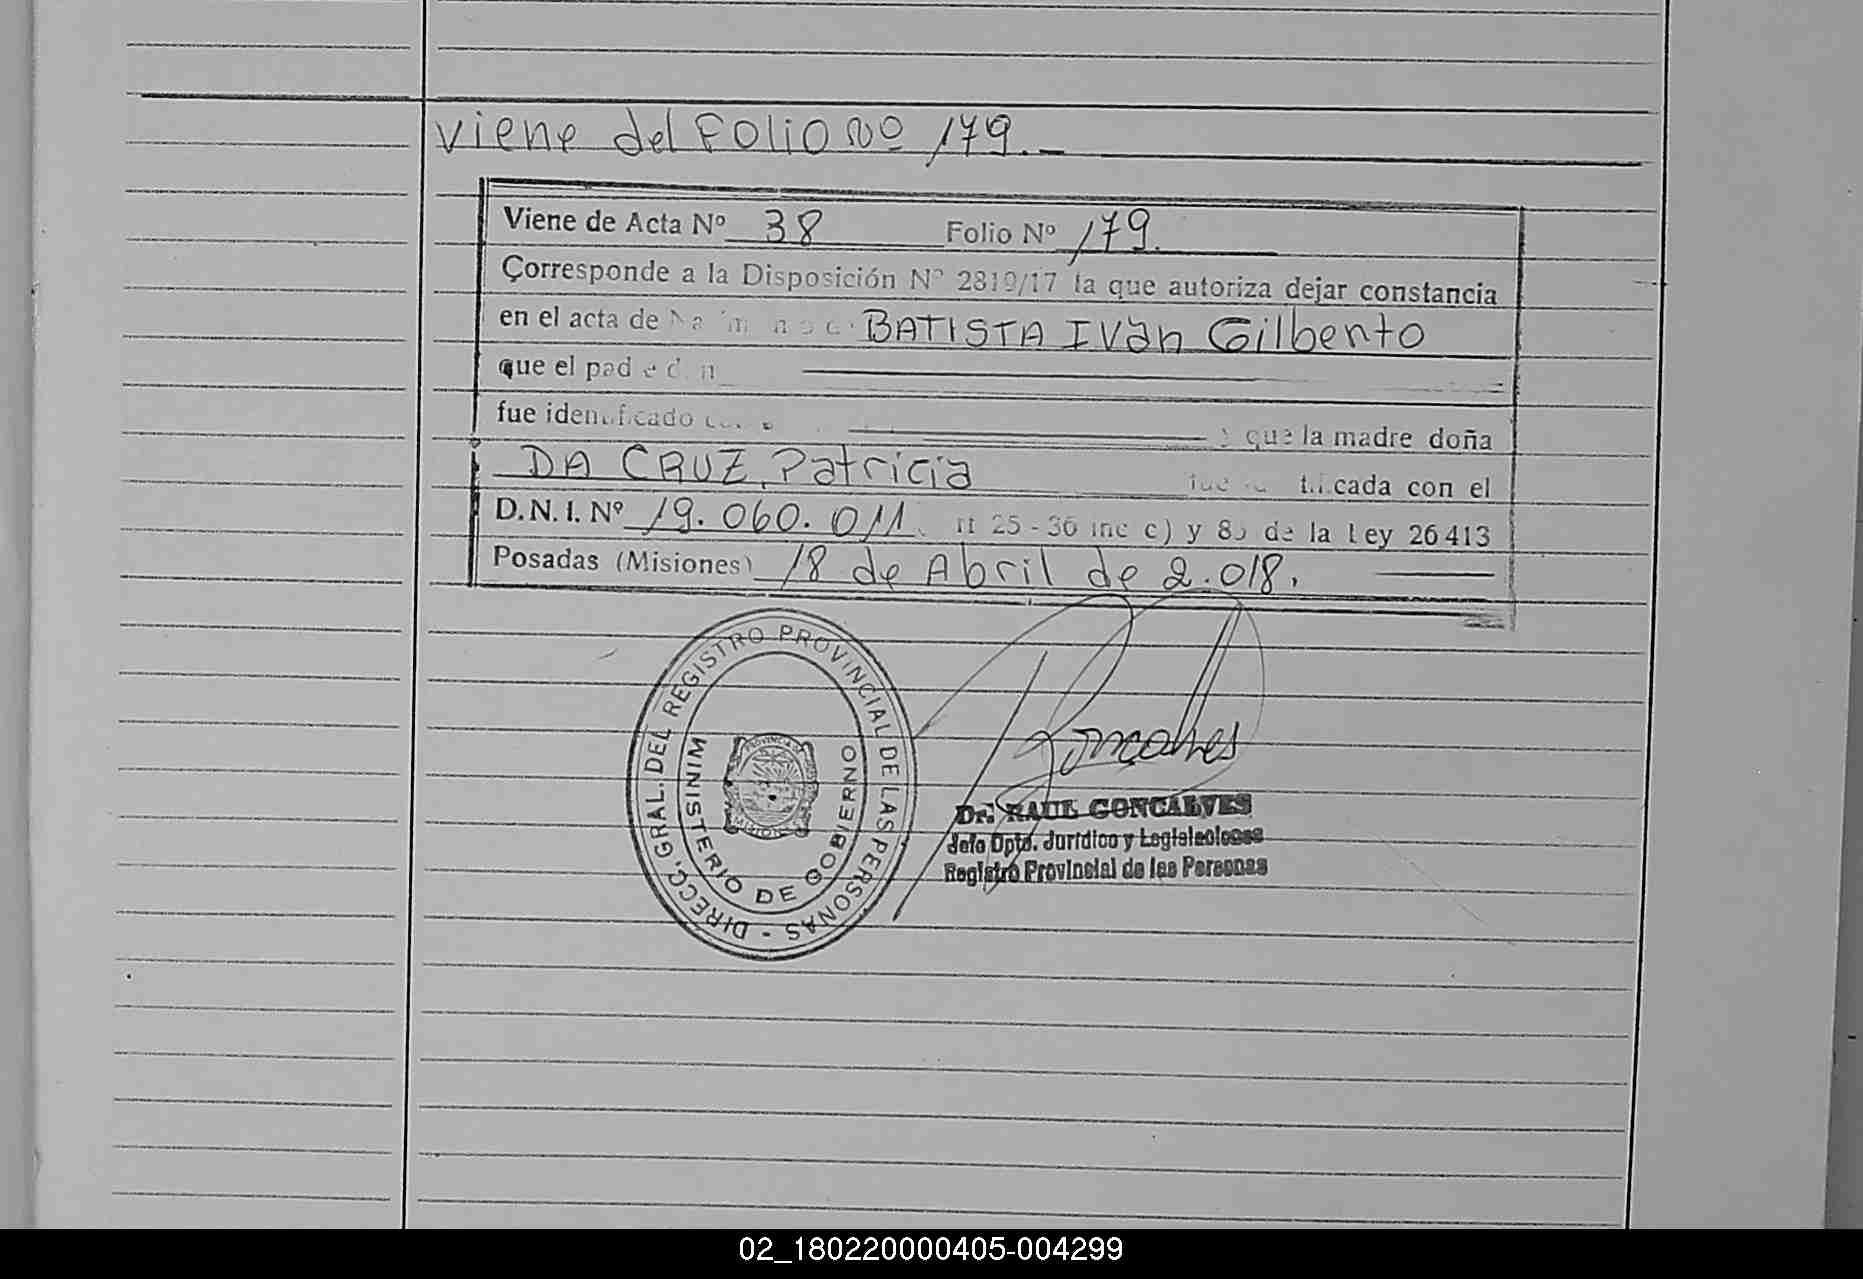 viene del Folio Nº 179.-
Viene de Acta Nº 38 Folio Nº 179.
Corresponde a la Disposición Nº 2819/17 la que autoriza dejar constancia
en el acta de BATISTA IVàn Gilberto
que el
fue identificado que la madre doña
DA CRUZ, Patricia con el
D.N.I. Nº 19.060.011 25 - 36 inc c) y 85 de la Ley 26413
Posadas (Misiones) 18 de Abril de 2.018.
DIRECC. GRAL. DEL REGISTRO PROVINCIAL DE LAS PERSONAS -
MINISTERIO DE GOBIERNO
PROVINCIA
MISIONES
Goncalves
Dr. RAUL GONCALVES
Jefe Dpto. Jurídico y Legislaciones
Registro Provincial de las Personas
02_180220000405-004299